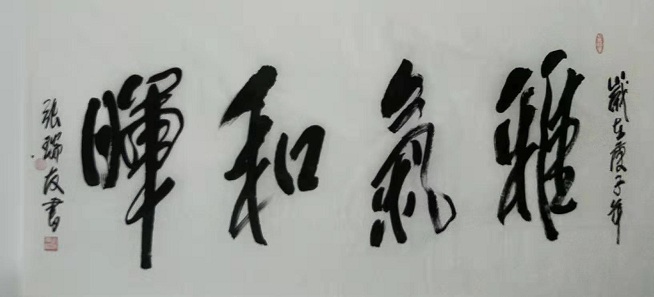 歲在庚子年
雅氣和暉
張瑞友書